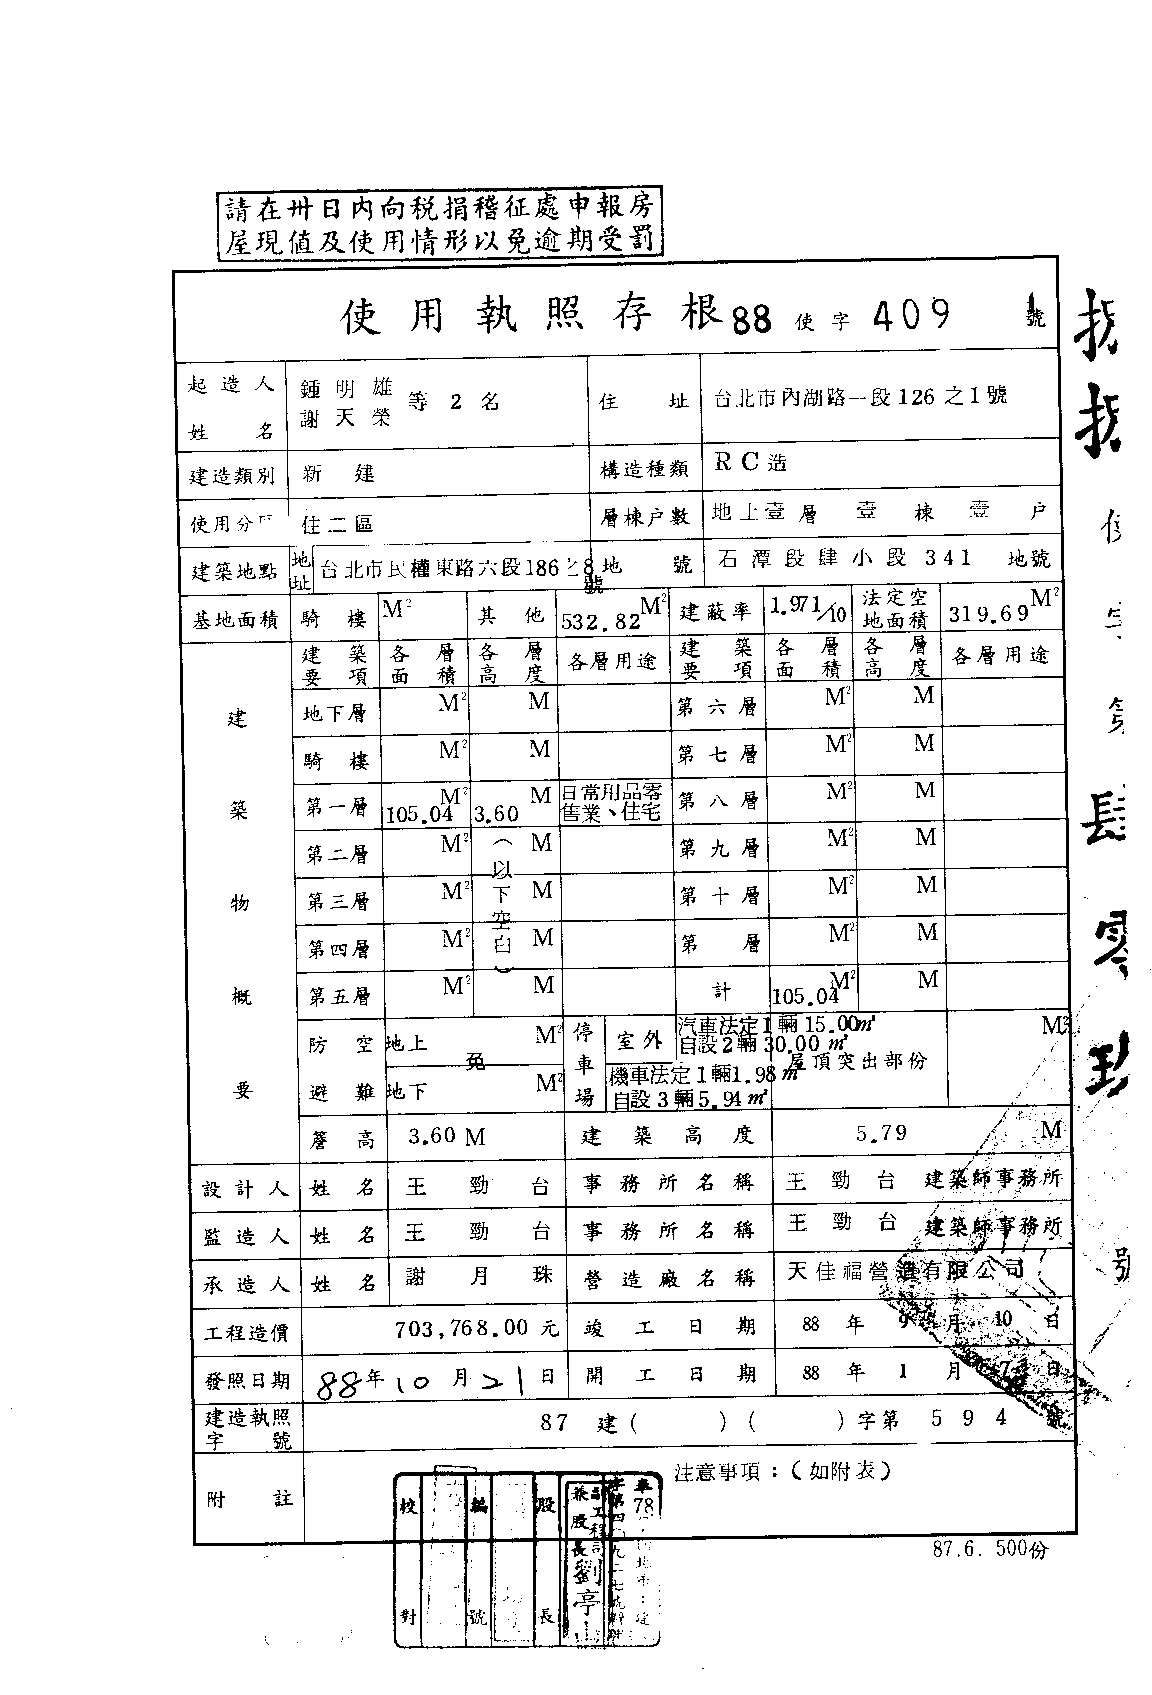 請在卅日內向稅捐稽征處申報房
屋現值及使用情形以免逾期受罰
使用執照存根 88 使字 409 號
起造人姓名 鍾明雄 謝天榮 等2名 住址 台北市內湖路一段126之1號
建造類別 新建 構造種類 RC造
使用分 住二區 層棟戶數 地上壹層壹棟壹戶
建築地點 地址 台北市民權東路六段186之8號 地號 石潭段肆小段341地號
基地面積 騎樓 M² 其他 532.82 M² 建蔽率 1.971/10 法定空地面積 319.69 M²
建築物概要
建築要項 各層面積 各層高度 各層用途 建築要項 各層面積 各層高度 各層用途
地下層 M² M 第六層 M² M
騎樓 M² M 第七層 M² M
第一層 105.04 M² 3.60 M 日常用品零售業、住宅 第八層 M² M
第二層 M² M 第九層 M² M
第三層 M² M 第十層 M² M
第四層 M² M 第 層 M² M
第五層 M² M 計 105.04 M² M
(以下空白)
防空避難 地上 M² 免 地下 M²
停車場 室外 汽車法定1輛15.00㎡
自設2輛30.00㎡
機車法定1輛1.98㎡
自設3輛5.94㎡
屋頂突出部份 M²
簷高 3.60 M 建築高度 5.79 M
設計人 姓名 王勁台 事務所名稱 王勁台 建築師事務所
監造人 姓名 王勁台 事務所名稱 王勁台 建築師事務所
承造人 姓名 謝月珠 營造廠名稱 天佳福營造有限公司
工程造價 703,768.00元 竣工日期 88年9月10日
發照日期 88年10月21日 開工日期 88年1月7日
建造執照字號 87建( )( )字第594號
附註 注意事項:(如附表)
校對 編號 股長
副工程司
兼股長劉亭
78
87.6. 500份
字第
肆
零
玖
號